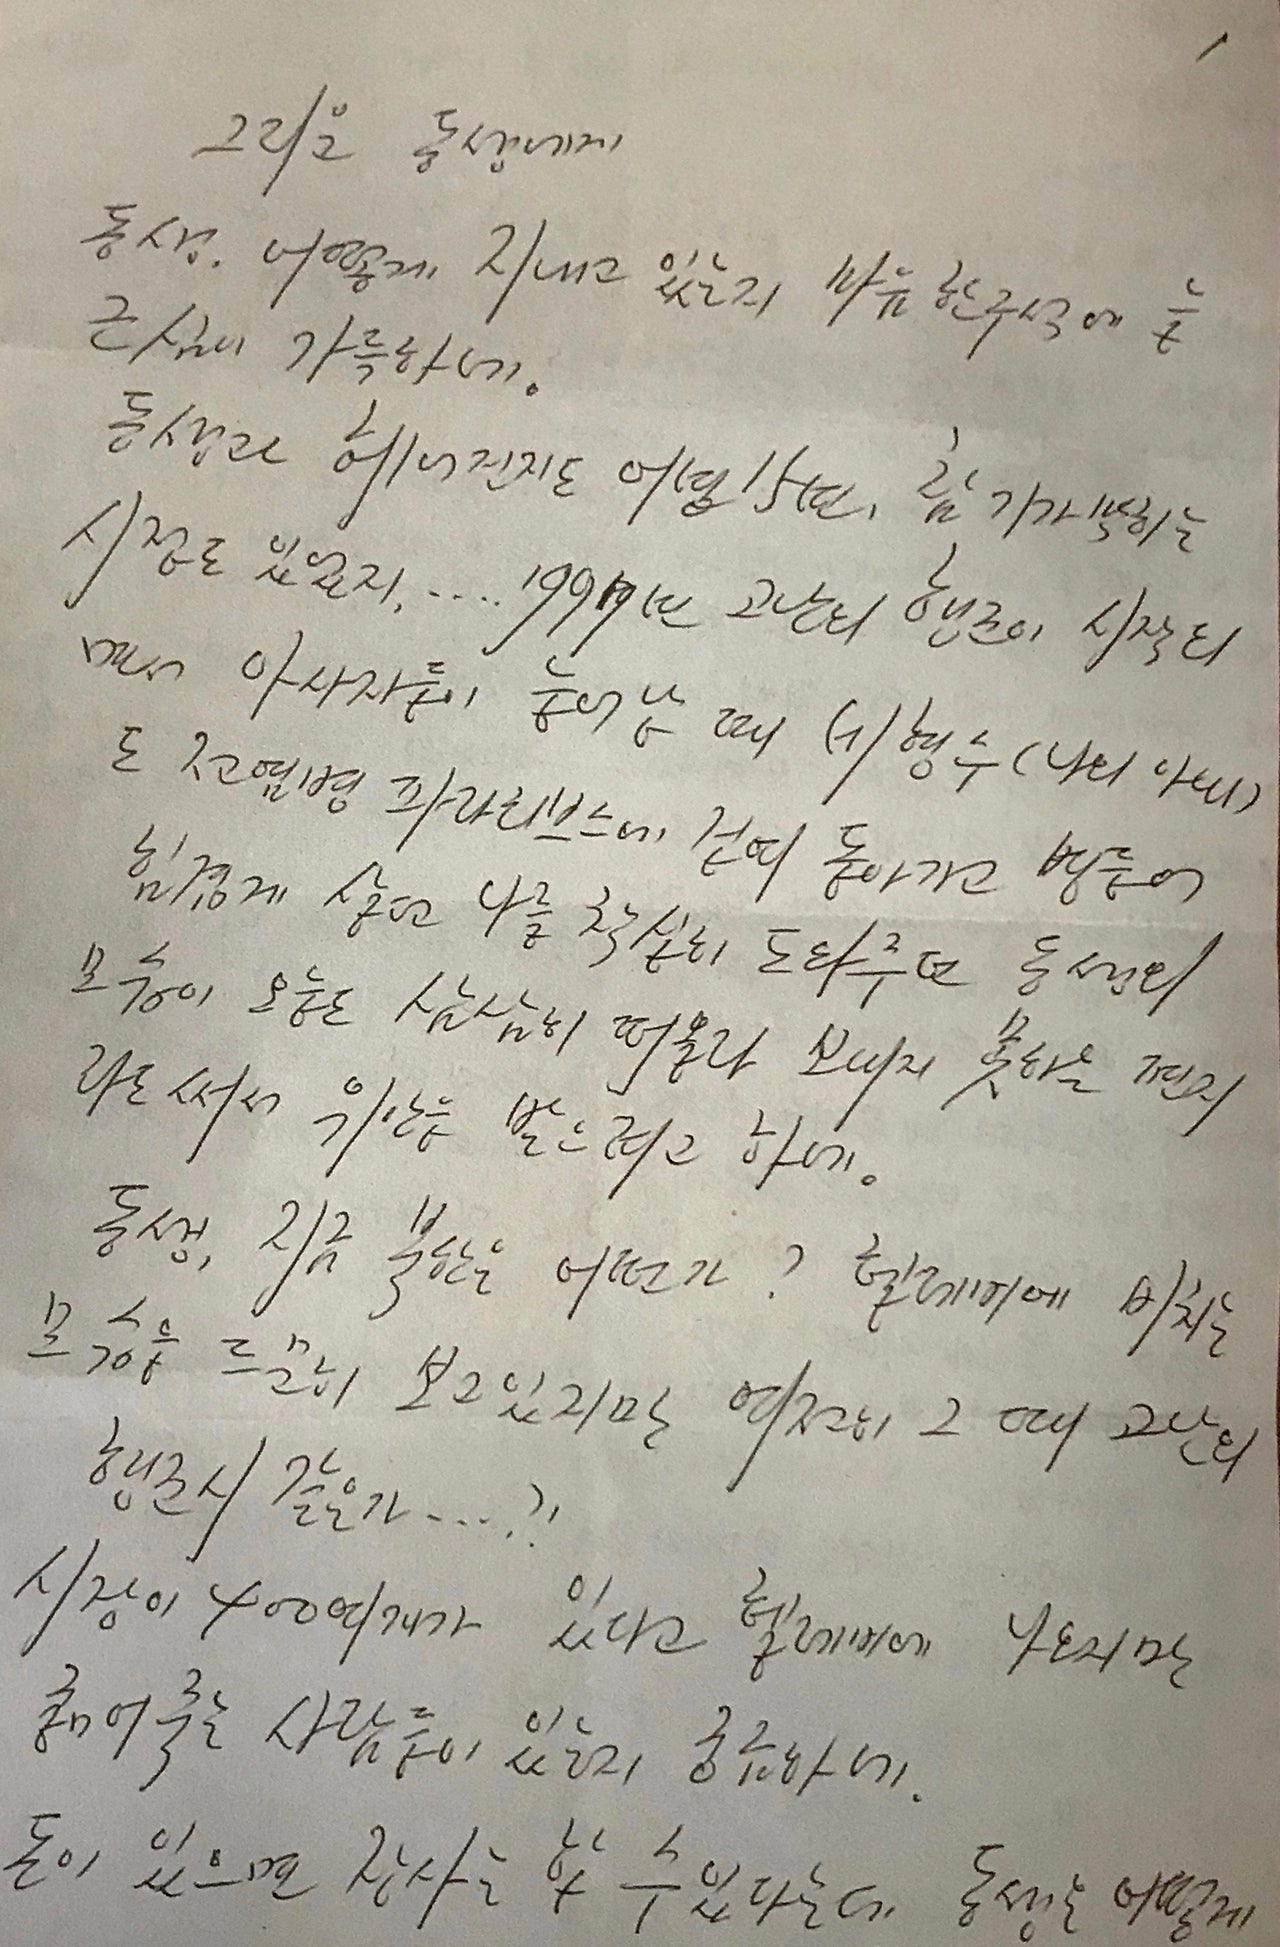 1
그리운 동생에게
동생. 어떻게 지내고 있는지 마음 한구석에 늘
근심이 가득하네.
동생과 헤어진지도 어언 15년, 참 기가막히는
시절도 있었지. .... 1997년 고난의 행군이 시작되
면서 아사자들이 늘어날 때 형수(나의 아내)
도 전염병 파라티브스에 걸려 돌아가고 병들어
힘겹게 살던 나를 착실히 도와주던 동생의
모습이 오늘도 삼삼히 떠올라 보내지 못하는 편지
라도 써서 위안을 받으려고 하네.
동생, 지금 북한은 어떤가? 텔레비에 비치는
모습을 드문히 보고있지만 여전히 그 때 고난의
행군시 같은가 ....?!
시장이 400여개가 있다고 텔레비에 나오지만
굶어죽는 사람들이 있는지 궁금하네.
돈이 있으면 장사는 할 수 있다는데 동생은 어떻게